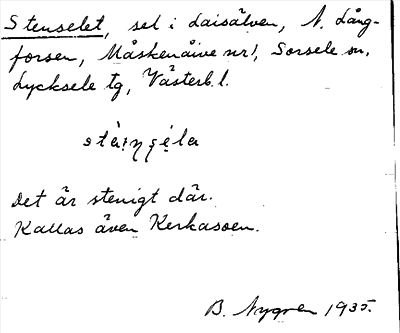 Stenselet, sel i Laisälven, N. Lång-
forsen, Måskenåive nr 1, Sorsele sn,
Lycksele tg, Västerb. l.
Det är stenigt där.
Kallas även Kerkassen.
B. Nygren 1935.